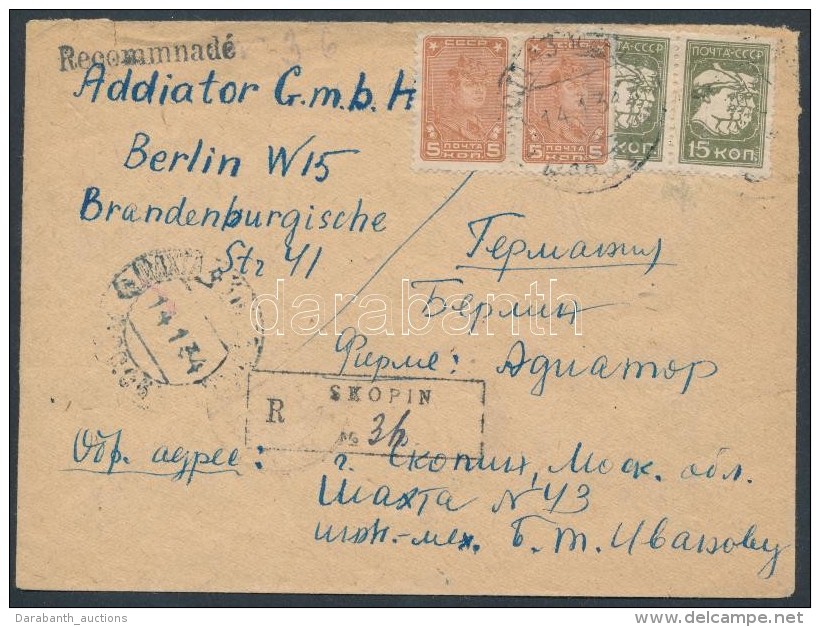 Recommnadé
Addiator G.m.b.H
Berlin W15
Brandenburgische
Str 41
СССР
5 ПОЧТА 5
КОП.
5 ПОЧТА 5
КОП.
ПОЧТА-СССР
КОП.
ПОЧТА-СССР
15 КОП.
14.1.34
Германия
Берлин
Фирме: Адиатор
14 1 34
ШАХТА
SKOPIN
R
№ 36
Обр. адрес:
г. Скопин, Моск. обл.
Шахта N 43
инж.-мех. Б. Т. Иванову
darabanth
Darabanth_auctions
delcampe.net